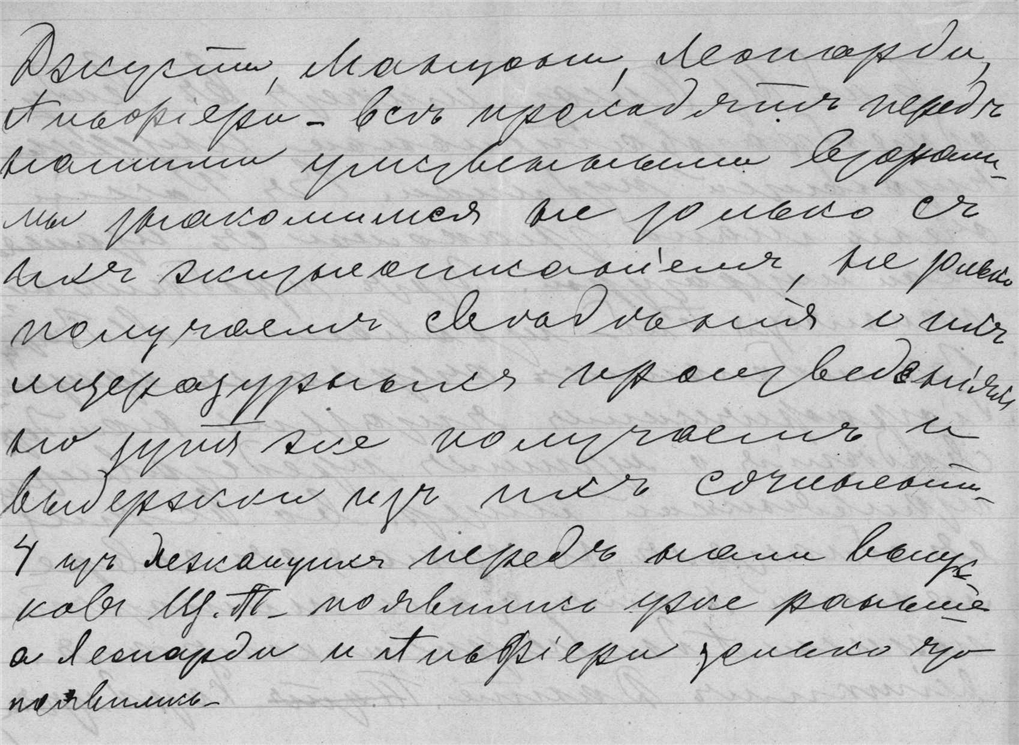 Джусти, Манцони, Леопарди,
Альфіери – всѣ проходятъ передъ
нашими умственными взорами
мы знакомимся не только съ
ихъ жизнеописаніемъ, не только
получаемъ свѣдѣнія о ихъ
литературныхъ произведеніяхъ
но тутъ же получаемъ и
выдержки изъ ихъ сочиненій.
4 изъ лежащихъ передъ нами выпус-
ковъ появились уже раньше
а Леопарди и Альфіери только что
появились.